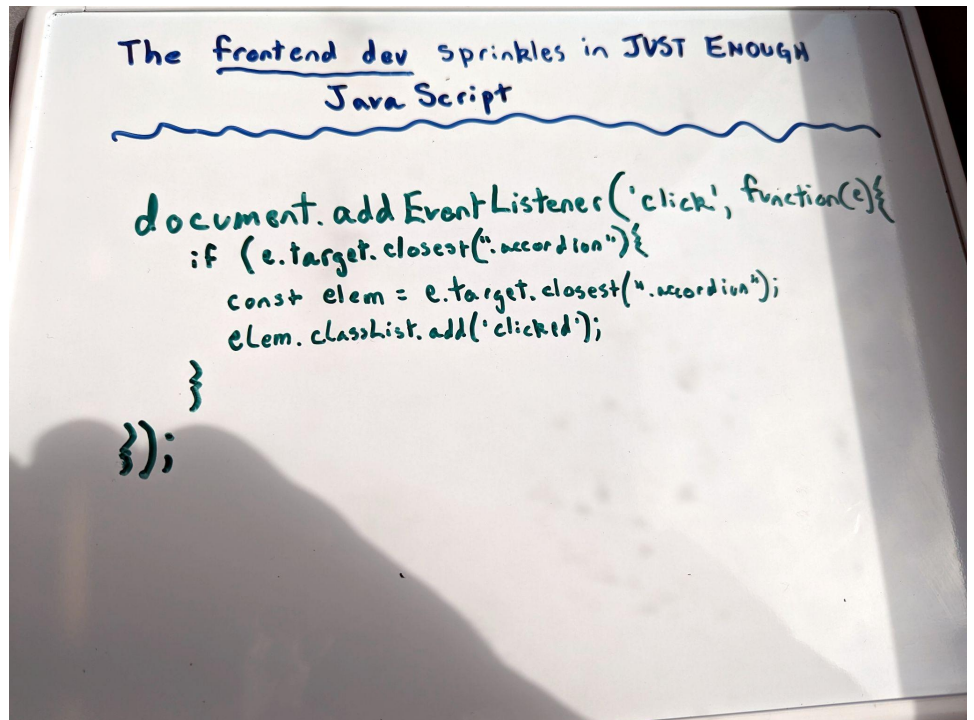 The frontend dev sprinkles in JUST ENOUGH
JavaScript
document.addEventListener('click', function(e){
if (e.target.closest(".accordion"){
const elem = e.target.closest(".accordion");
elem.classList.add('clicked');
}
});